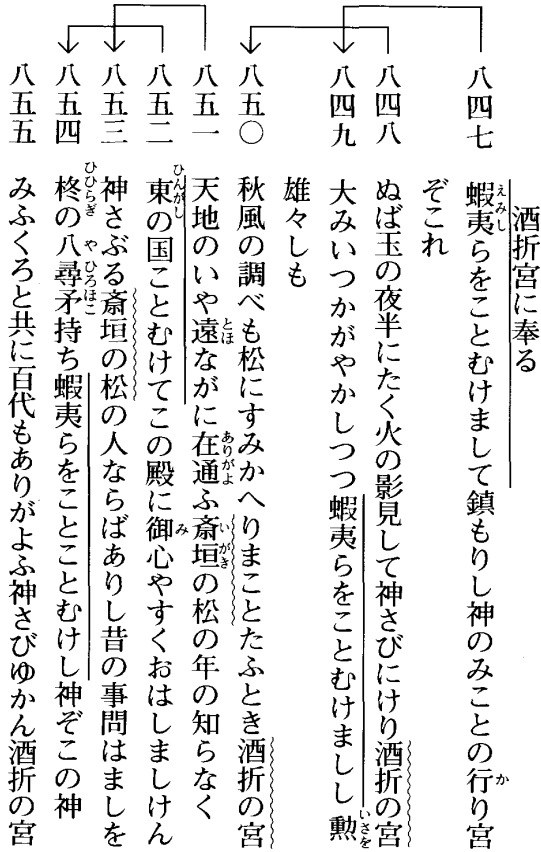 酒折宮に奉る
八四七 蝦夷らをことむけまして鎮もりし神のみことの行り宮
ぞこれ
八四八 ぬば玉の夜半にたく火の影見して神さびにけり酒折の宮
八四九 大みいつかがやかしつつ蝦夷らをことむけましし勲
雄々しも
八五〇 秋風の調べも松にすみかへりまことたふとき酒折の宮
八五一 天地のいや遠ながに在通ふ斎垣の松の年の知らなく
八五二 東の国ことむけてこの殿に御心やすくおはしましけん
八五三 神さぶる斎垣の松の人ならばありし昔の事問はましを
八五四 柊の八尋矛持ち蝦夷らをことことむけし神ぞこの神
八五五 みふくろと共に百代もありがよふ神さびゆかん酒折の宮